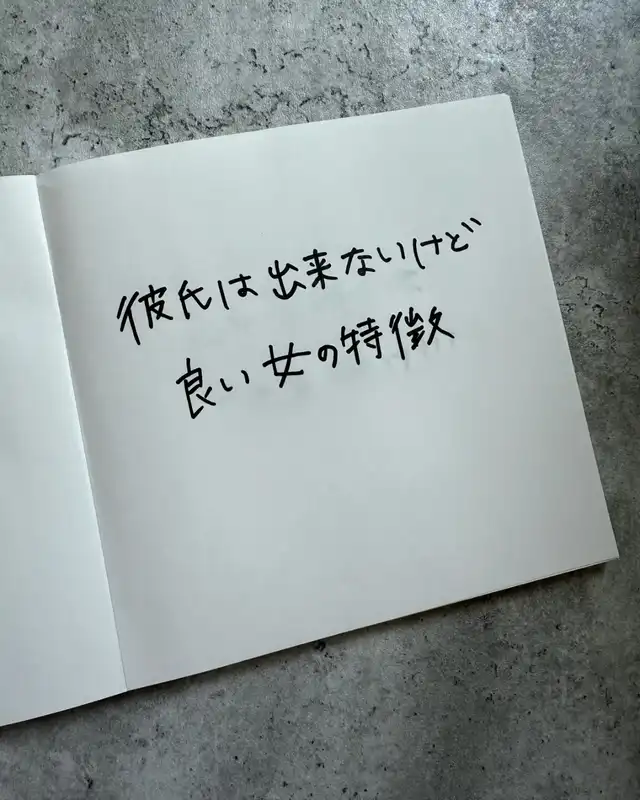 彼氏は出来ないけど
良い女の特徴